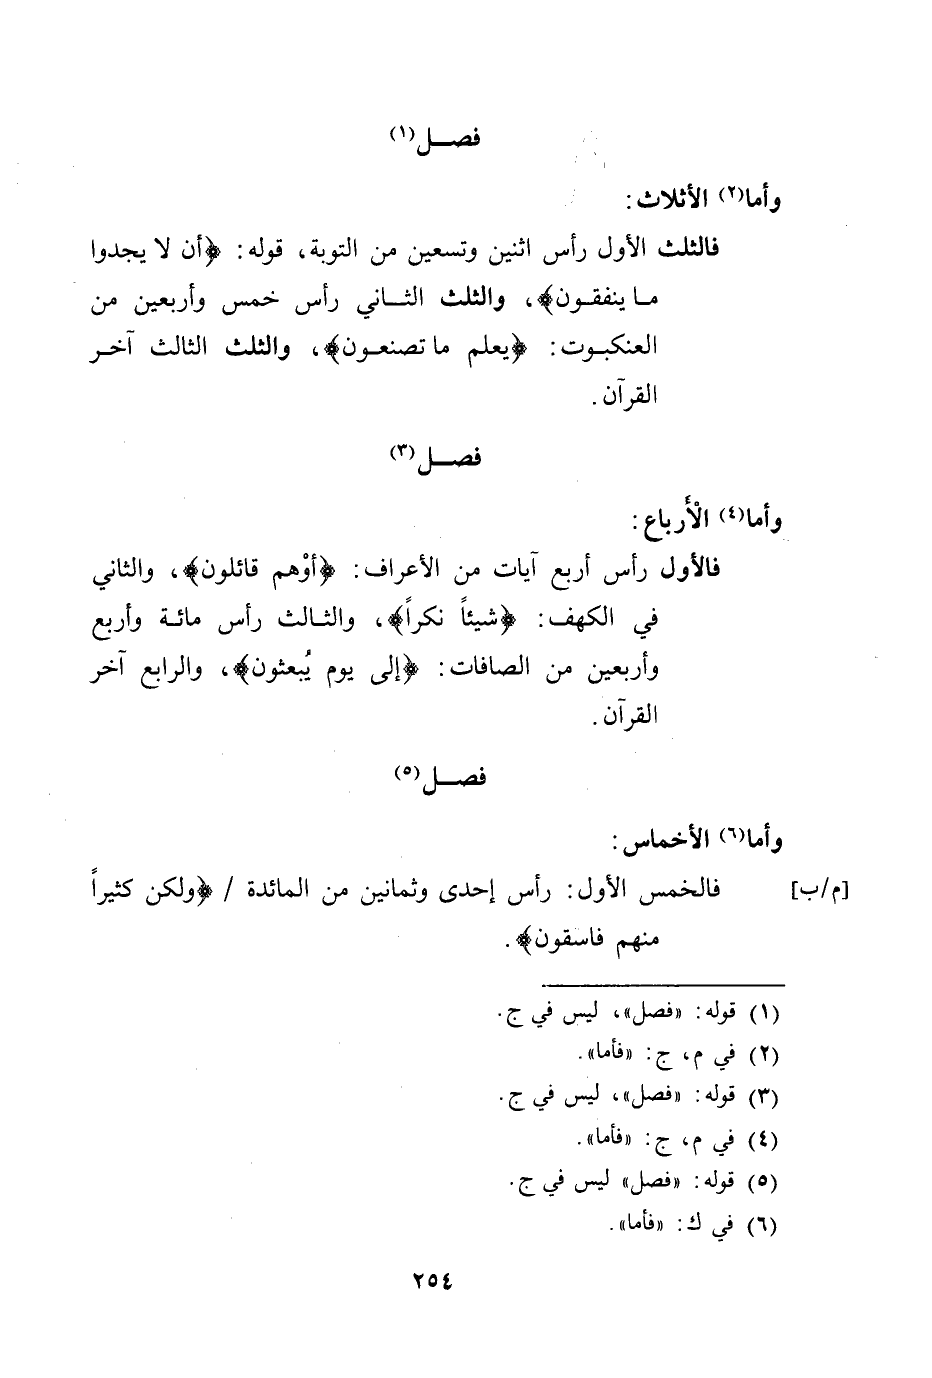 فصـــل(١)
وأما(٢) الأثلاث:
فالثلث الأول رأس اثنين وتسعين من التوبة، قوله: ﴿أن لا يجدوا
مـا ينفقـون﴾، والثلث الثـاني رأس خمس وأربعين من
العنكبـوت: ﴿يعلم ما تصنعـون﴾، والثلث الثالث آخـر
القرآن.
فصـــل(٣)
وأما(٤) الْأَرباع:
فالأول رأس أربع آيات من الأعراف: ﴿أوْهم قائلون﴾، والثاني
في الكهف: ﴿شيئاً نكراً﴾، والثـالث رأس مائـة وأربع
وأربعين من الصافات: ﴿إلى يوم يُبعثون﴾، والرابع آخر
القرآن.
فصـــل(٥)
وأما(٦) الأخماس:
[م/ب] فالخمس الأول: رأس إحدى وثمانين من المائدة / ﴿ولكن كثيراً
منهم فاسقون﴾.
(١) قوله: «فصل»، ليس في ج.
(٢) في م، ج: «فأما».
(٣) قوله: «فصل»، ليس في ج.
(٤) في م، ج: «فأما».
(٥) قوله: «فصل» ليس في ج.
(٦) في ك: «فأما».
٢٥٤